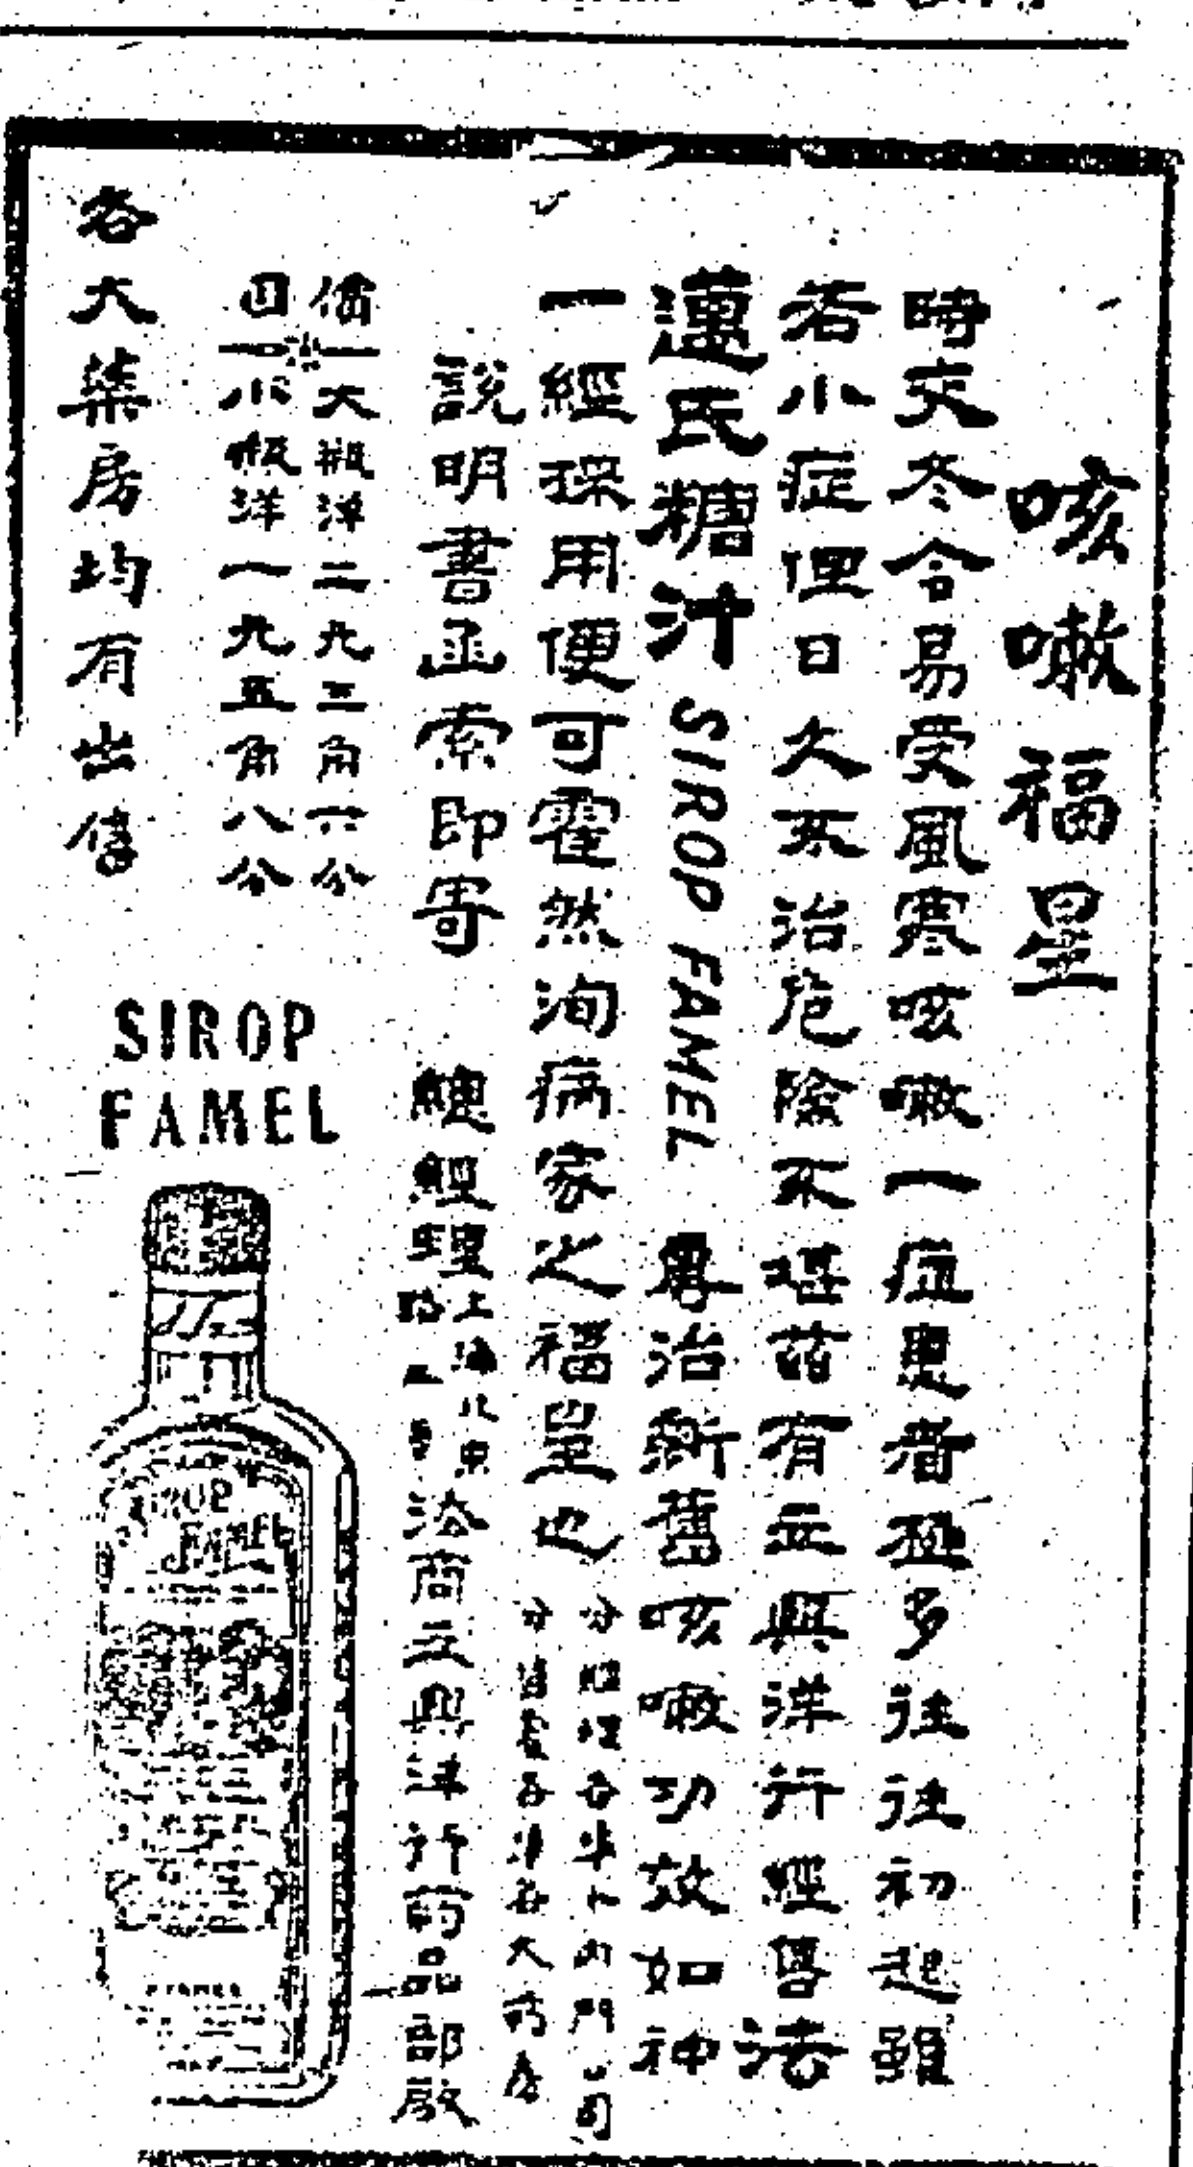 咳嗽福星
時交冬令易受風寒咳嗽一症患者孔多往往初起雖
若小症但日久不治危險不堪茲有立興洋行經售法
蓮氏糖汁 SIROP FAMEL 專治新舊咳嗽功效如神
一經採用便可霍然洵病家之福星也
分經理天津卜內門公司
分售處各埠各大药房
說明書函索即寄
總經理上海北京路 法商立興洋行药品部啟
價大瓶洋二元三角六分
目小瓶洋一元五角八分
各大葯房均有出售
SIROP
FAMEL
SIROP
FAMEL